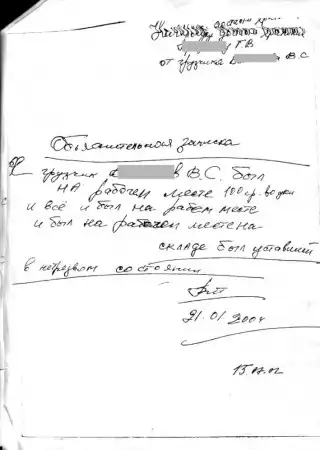 Начальнику
Г.В.
от грузчика В.С.
Объяснительная записка
Я грузчик В.С. был
на рабочем месте 100 гр. водки
и всё и был на рабем месте
и был на рабочем месте на
складе был уставший
в нетрезвом состоянии
21.01 2004